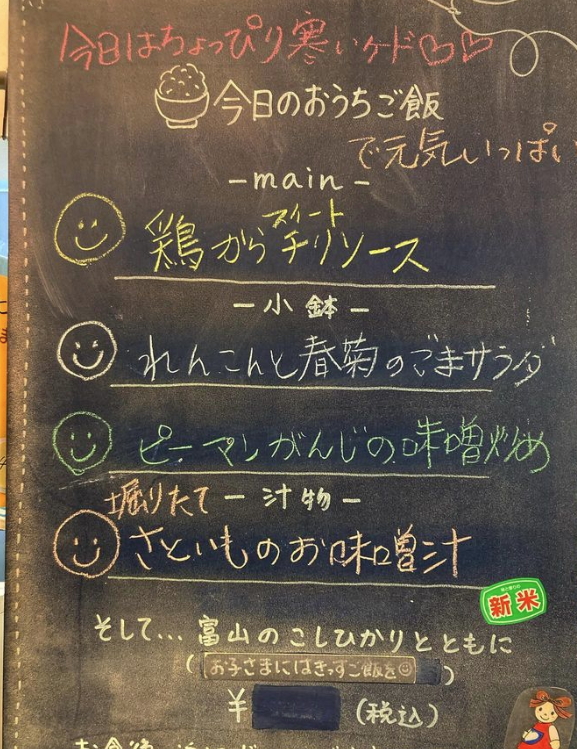 今日はちょっぴり寒いケド♡♡
今日のおうちご飯
で元気いっぱい
-main-
鶏からスイートチリソース
-小鉢-
れんこんと春菊のごまサラダ
ピーマンがんじの味噌炒め
掘りたて -汁物-
さといものお味噌汁
新米
そして... 富山のこしひかりとともに
(お子さまにはきっずご飯を☺)
¥ (税込)